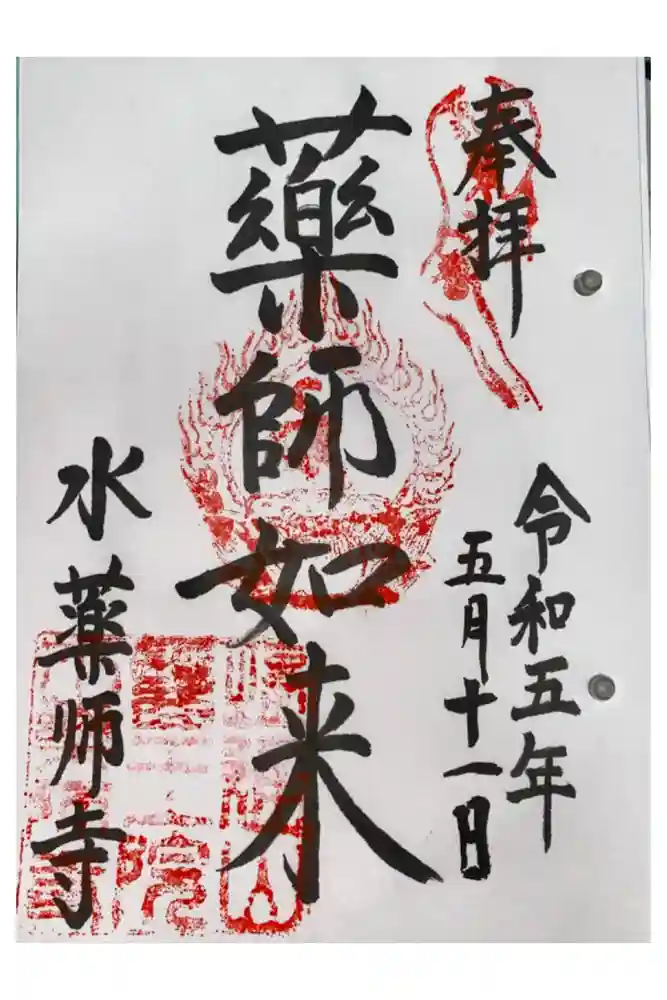 奉拝
令和五年
五月十一日
藥師如来
水薬师寺